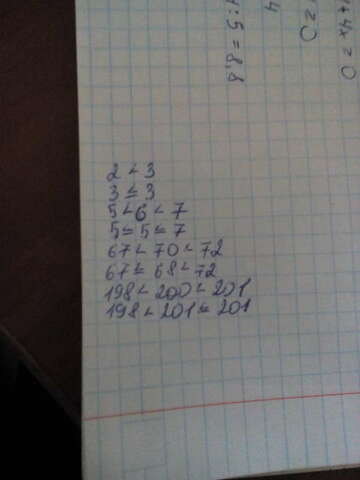 +4x=0
=0
4
4:5=8,8
2<3
3≤3
5<6<7
5≤5≤7
67<70<72
67≤68<72
198<200<201
198<201≤201